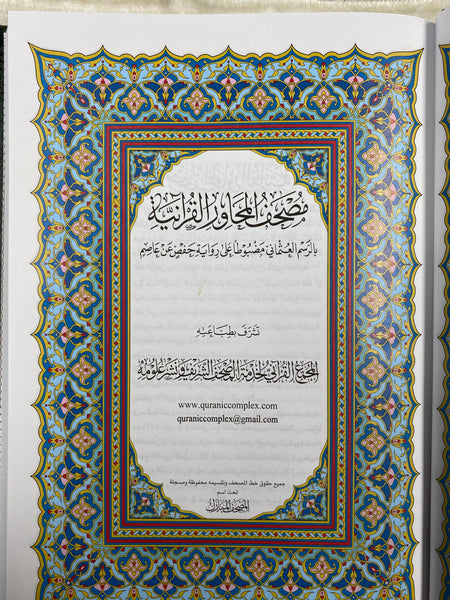 مصحف المحاور القرآنية
بالرسم العثماني مضبوطا على رواية حفص عن عاصم
تشرف بطباعته
المجمع القرآني لخدمة المصحف الشريف ونشر علومه
www.quraniccomplex.com
quraniccomplex@gmail.com
جميع حقوق خط المصحف وتقسيمه محفوظة ومسجلة
تحت اسم
المصحف المبارك